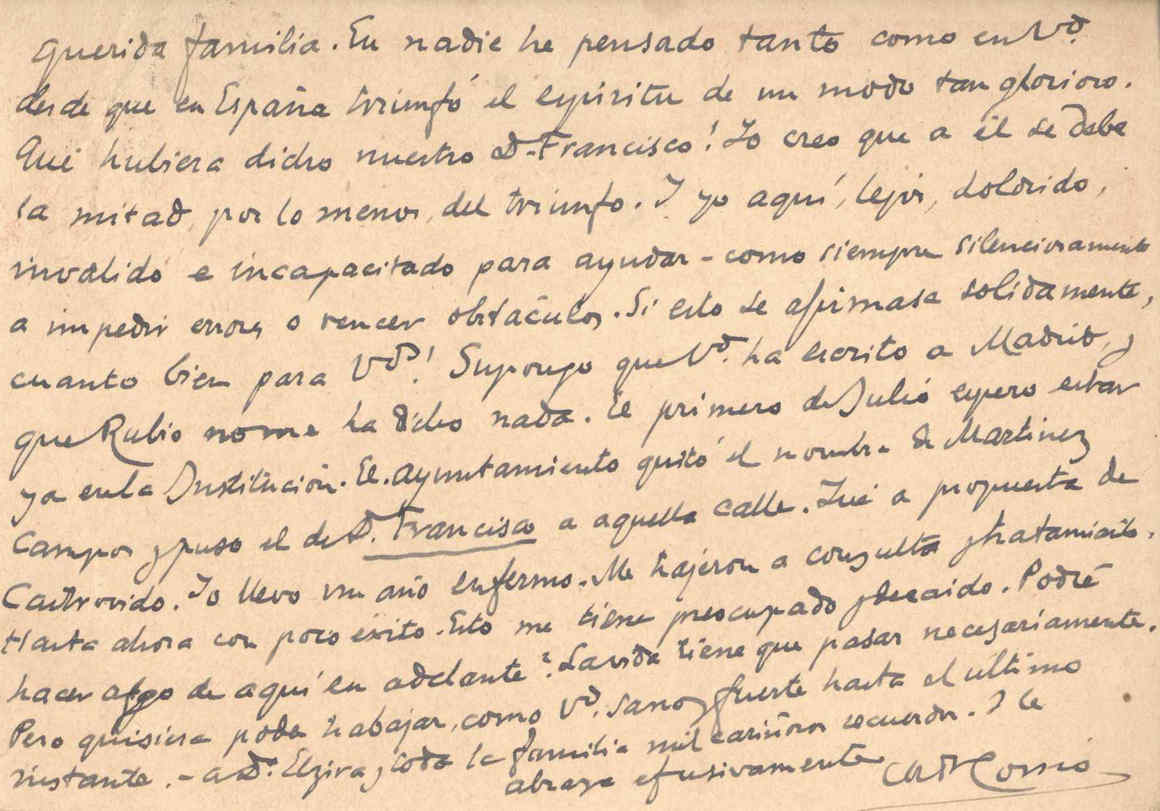 Querida familia. En nadie he pensado tanto como en Vd.
desde que en España triunfó el espíritu de un modo tan glorioso.
Qué hubiera dicho nuestro D. Francisco! Yo creo que a él se debe
la mitad, por lo menos, del triunfo. Y yo aquí, lejos, dolorido,
inválido e incapacitado para ayudar - como siempre silenciosamente
a impedir errores o vencer obstáculos. Si esto se afirmase solidamente,
cuanto bien para Vds! Supongo que Vd. ha escrito a Madrid, y
que Rubio no me ha dicho nada. El primero de Julio espero estar
ya en la Institución. El ayuntamiento quitó el nombre de Martinez
Campos y puso el de D. Francisco a aquella calle. Fué a propuesta de
Castrovido. Yo llevo un año enfermo. Me trajeron a consulta y tratamiento.
Hasta ahora con poco éxito. Esto me tiene preocupado y decaido. Podré
hacer algo de aquí en adelante? La vida tiene que pasar necesariamente.
Pero quisiera poder trabajar, como Vd. sano y fuerte hasta el ultimo
instante. - a Dª. Elvira y toda la familia mil cariñosos recuerdos. Y le
abraza efusivamente Cossío